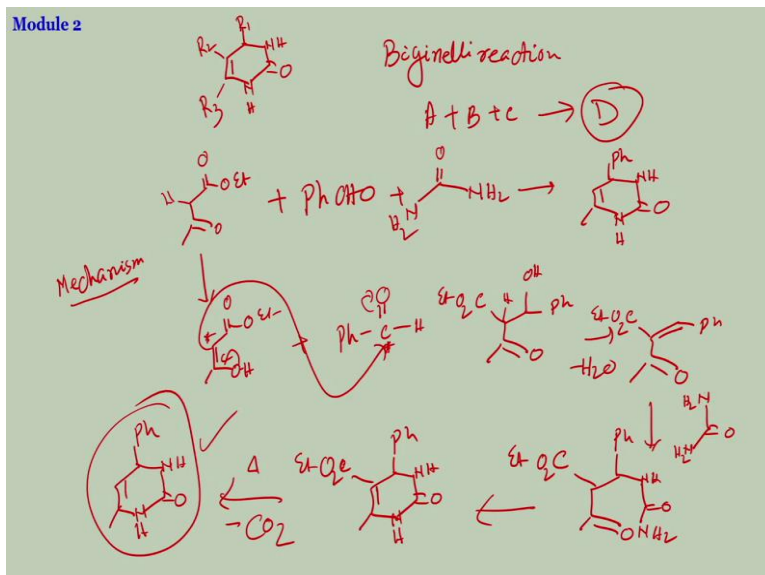 Module 2
R1
R2
NH
O
R3
N
H
Biginelli reaction
A + B + C → D
O
OEt
H
O
+ PhCHO +
O
H2N
NH2
→
Ph
NH
O
N
H
Mechanism
O
OEt
OH
O
Ph-C-H
EtO2C
H
OH
Ph
O
-H2O
EtO2C
Ph
O
H2N
O
H2N
Ph
EtO2C
NH
O
O
NH2
Ph
EtO2C
NH
O
N
H
Δ
-CO2
Ph
NH
O
N
H